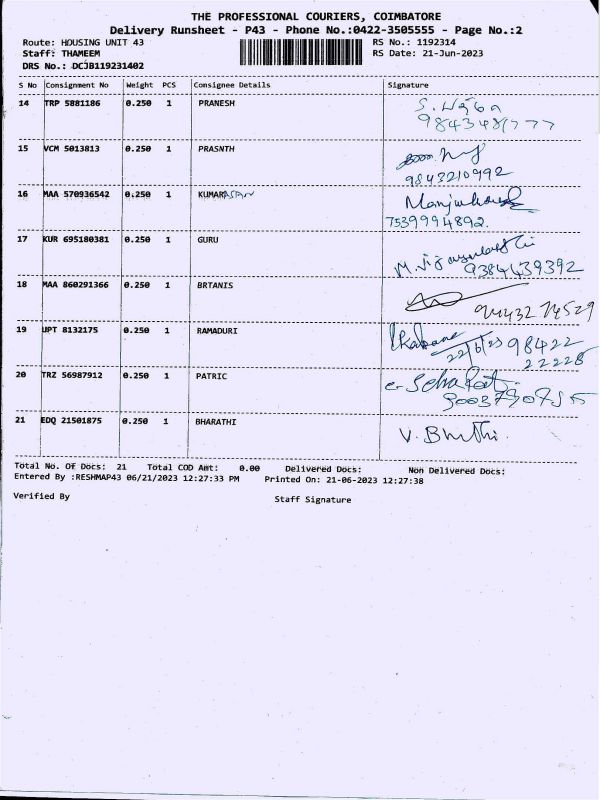 THE PROFESSIONAL COURIERS, COIMBATORE
Delivery Runsheet - P43 - Phone No.:0422-3505555 - Page No.:2
Route: HOUSING UNIT 43 RS No.: 1192314
Staff: THAMEEM RS Date: 21-Jun-2023
DRS No.: DCJB119231402
S No Consignment No Weight PCS Consignee Details Signature
14 TRP 5881186 0.250 1 PRANESH
15 VCM 5013813 0.250 1 PRASNTH
9843210992
16 MAA 570936542 0.250 1 KUMARASAN
7539994892.
17 KUR 695180381 0.250 1 GURU
9384439392
18 MAA 860291366 0.250 1 BRTANIS
19 UPT 8132175 0.250 1 RAMADURI
22/6/23 98422
22228
20 TRZ 56987912 0.250 1 PATRIC
21 EDQ 21501875 0.250 1 BHARATHI
Total No. Of Docs: 21 Total COD Amt: 0.00 Delivered Docs: Non Delivered Docs:
Entered By :RESHMAP43 06/21/2023 12:27:33 PM Printed On: 21-06-2023 12:27:38
Verified By Staff Signature